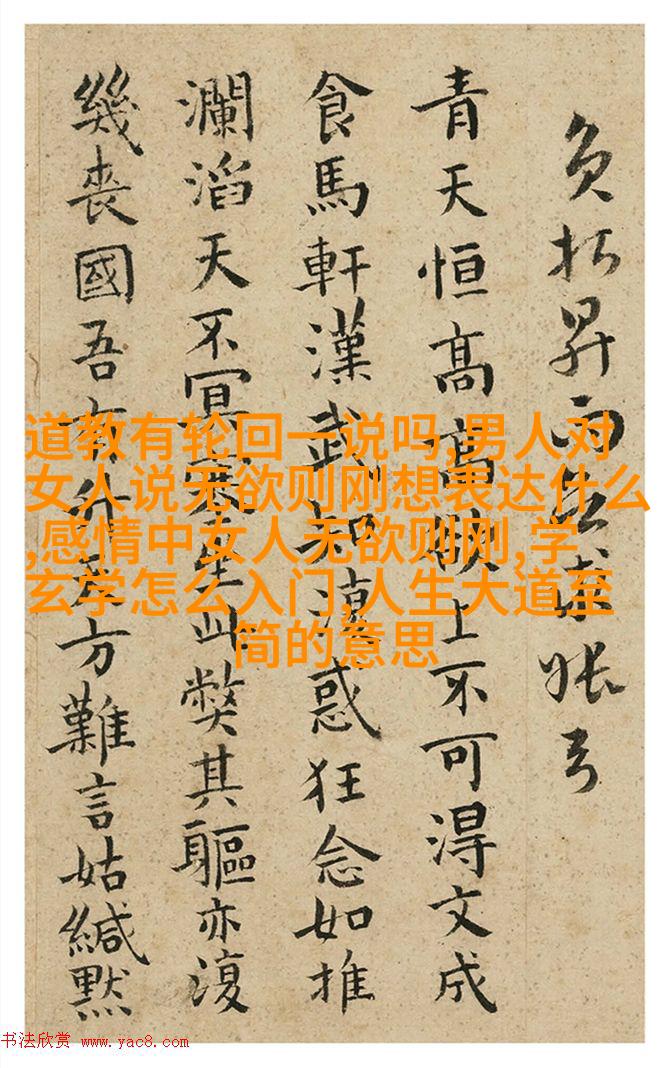 食馬軒漢武知惑狂念如推
青天恒高高上不可得文成
瀾滔天不冥塞坐此弊其軀亦復
幾喪國吾有升方難言姑緘默
道教有轮回一说吗,男人对
女人说无欲则刚想表达什么
,感情中女人无欲则刚,学
玄学怎么入门,人生大道至
简的意思
书法欣赏 www.yac8.com